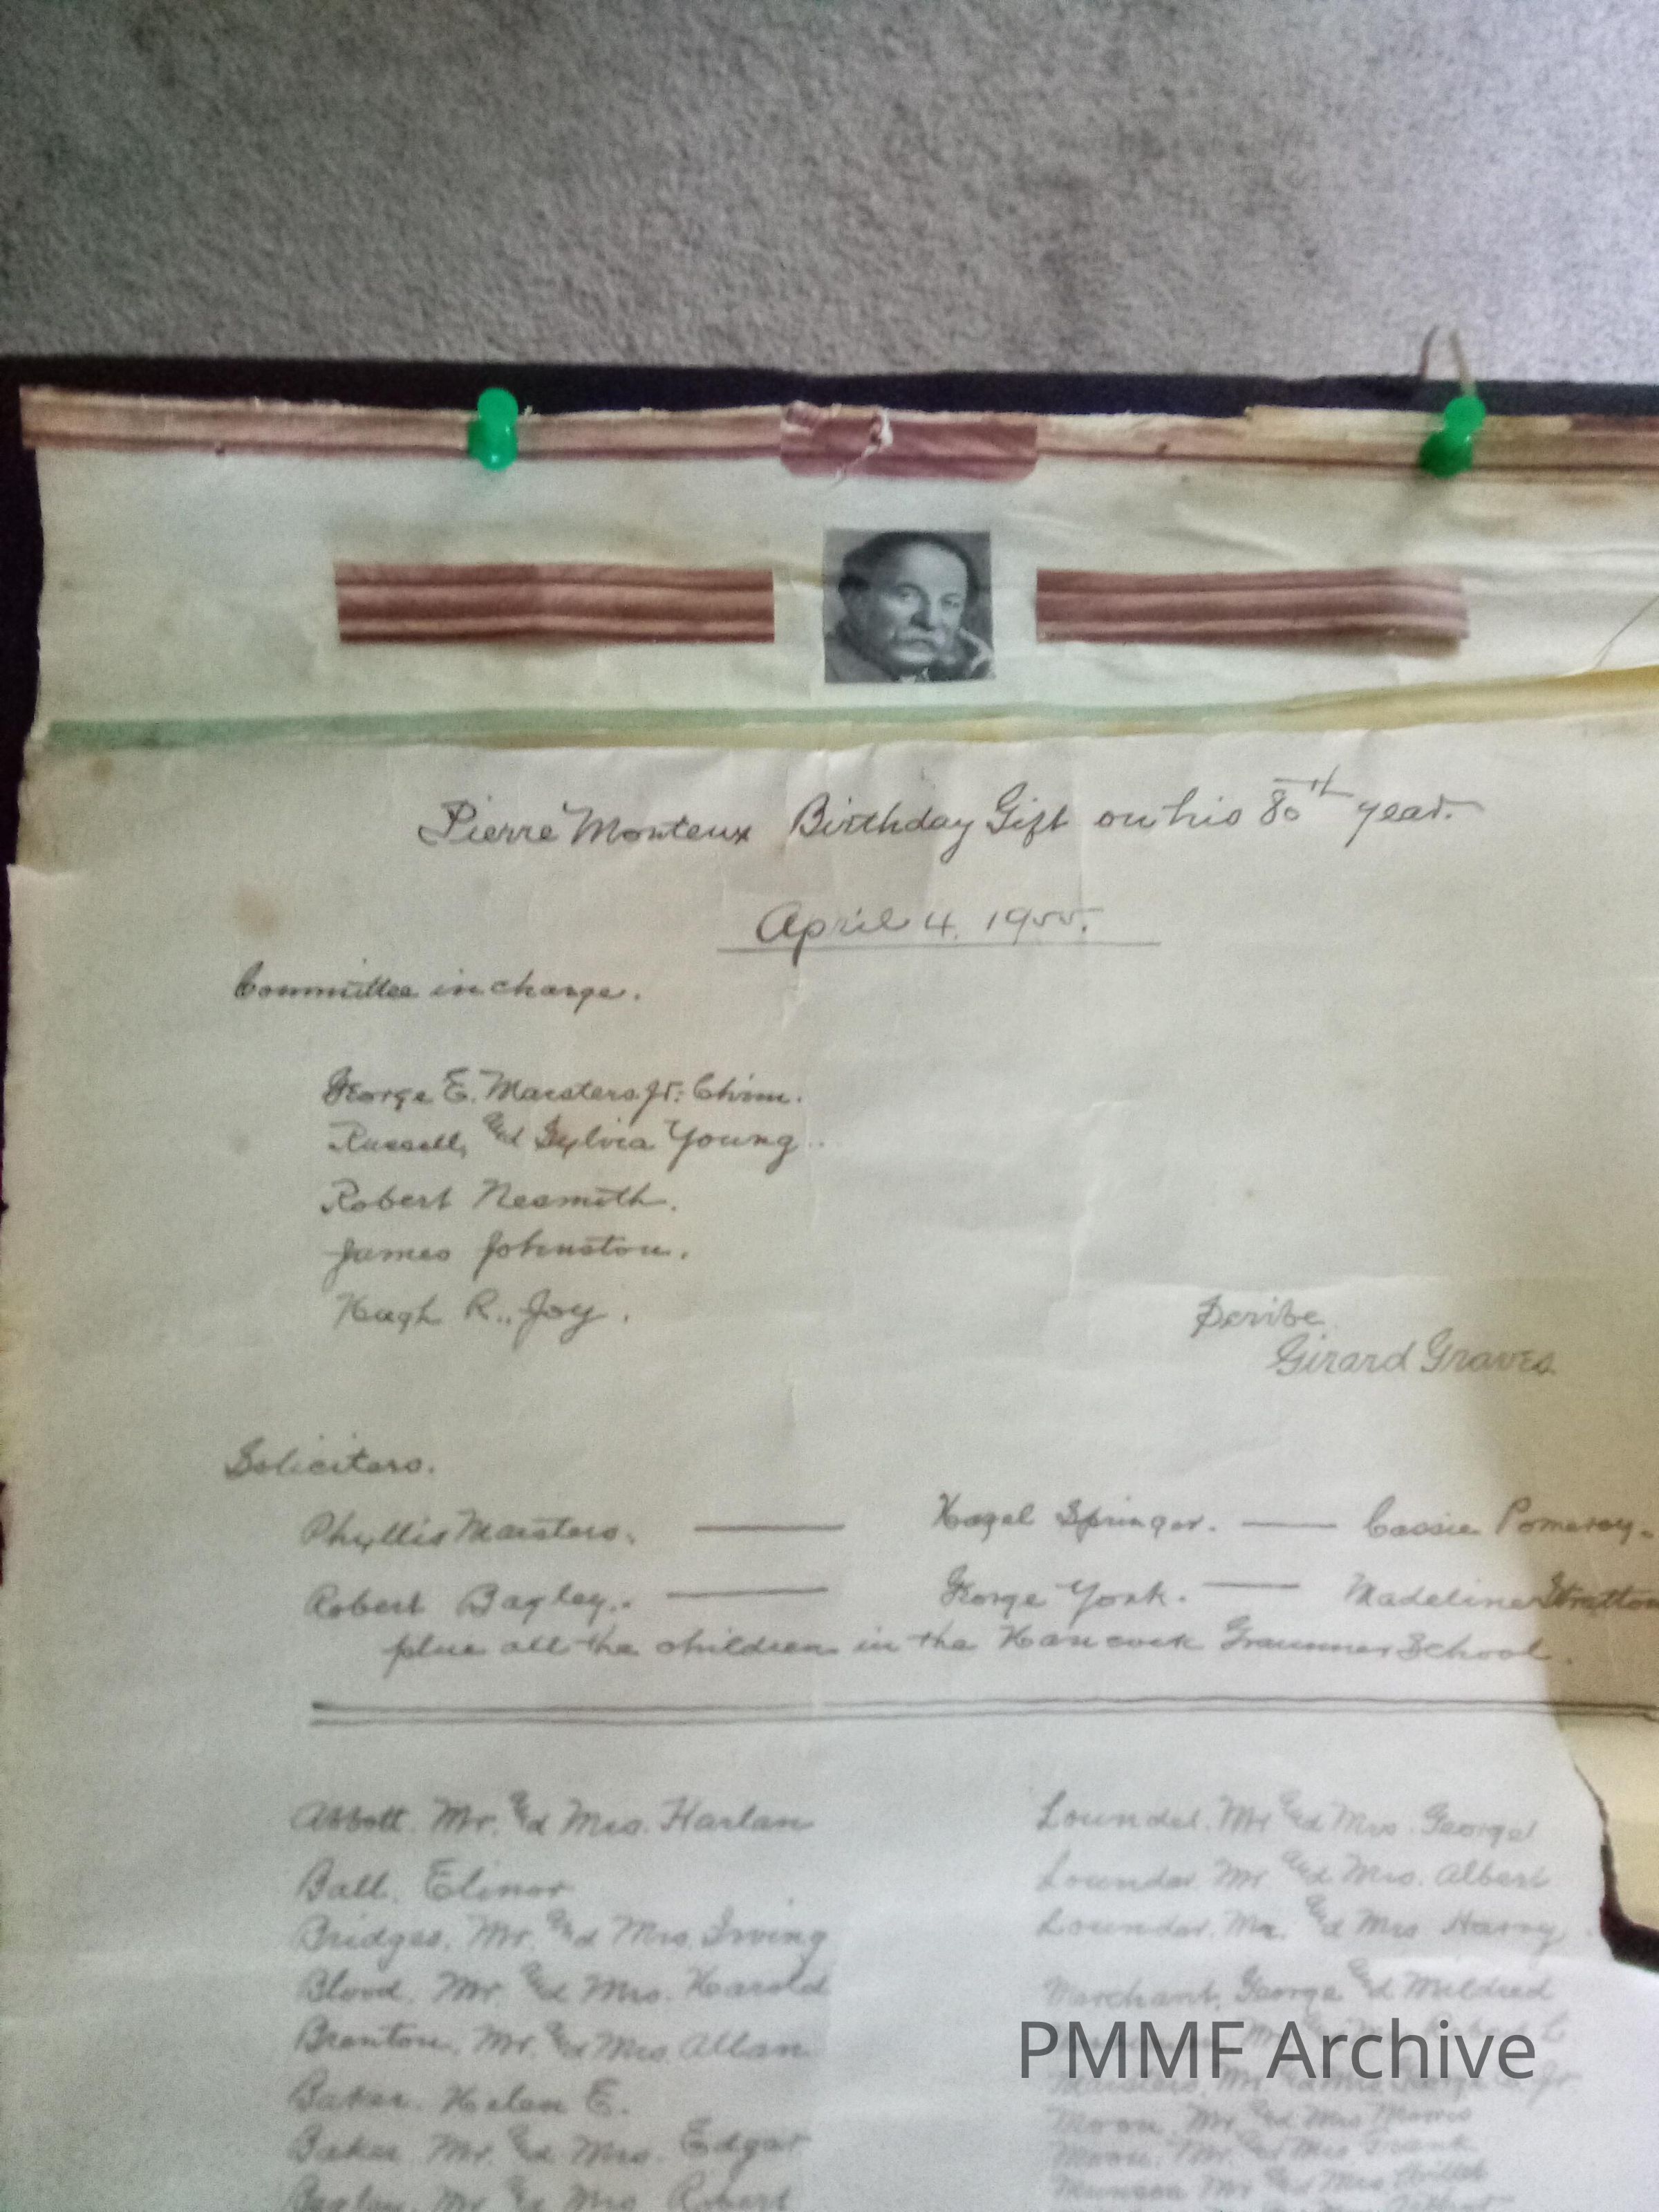 Pierre Monteux Birthday Gift on his 80th year.
April 4. 1955.
Committee in charge.
George E. Marsters Jr. Chrm.
Russell, and Sylvia Young..
Robert Nesmith.
James Johnston.
Hugh R., Joy.
Scribe
Girard Graves
Soliciters.
Phyllis Marsters. — Hazel Springer. — Cassie Pomeroy.
Robert Bagley.. — George York. — Madeline Stratton
plus all the children in the Hancock Grammer School.
Abbott. Mr. and Mrs. Harlan
Ball. Elinor
Bridges. Mr. and Mrs. Irving
Blood. Mr. and Mrs. Harold
Mr. and Mrs. Allan
Baker. Helen E.
Baker. Mr. and Mrs. Edgar
Mr. and Mrs. Robert
Mr and Mrs. George
Lounder. Mr and Mrs. Albert
Lounder. Mr. and Mrs Harvy
Merchant, George and Mildred
Moon, Mr and Mrs Morris
Moon, Mr. and Mrs Frank
Munson Mr and Mrs
PMMF Archive